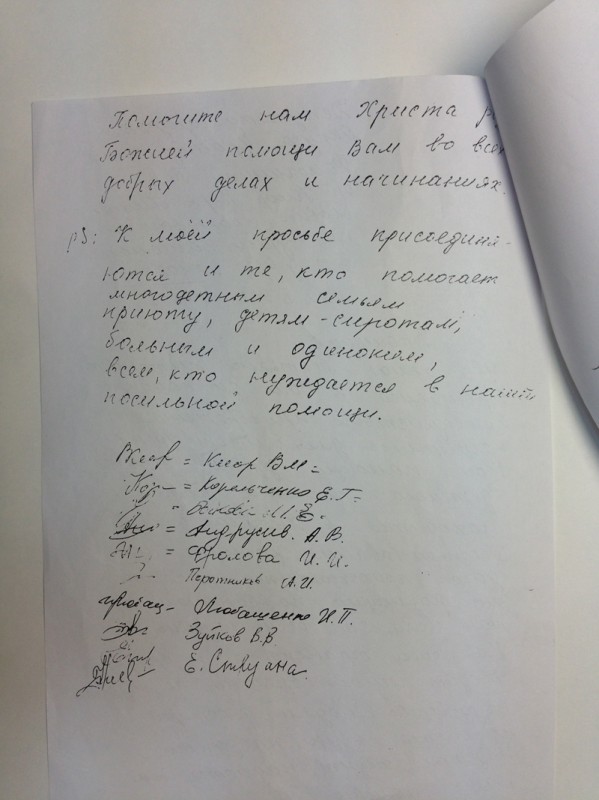 Помогите нам Христа
Божией помощи Вам во всех
добрых делах и начинаниях.
PS: К моей просьбе присоединя-
ются и те, кто помогает
многодетным семьям
приюту, детям-сиротам,
больным и одиноким,
всем, кто нуждается в нашей
посильной помощи.
= В.М.
= Корольченко Е.Г.
= Андрусив. А.В.
= Фролова И. И.
Поротников А.И.
Любащенко И.П.
Зуйков В.В
Е.